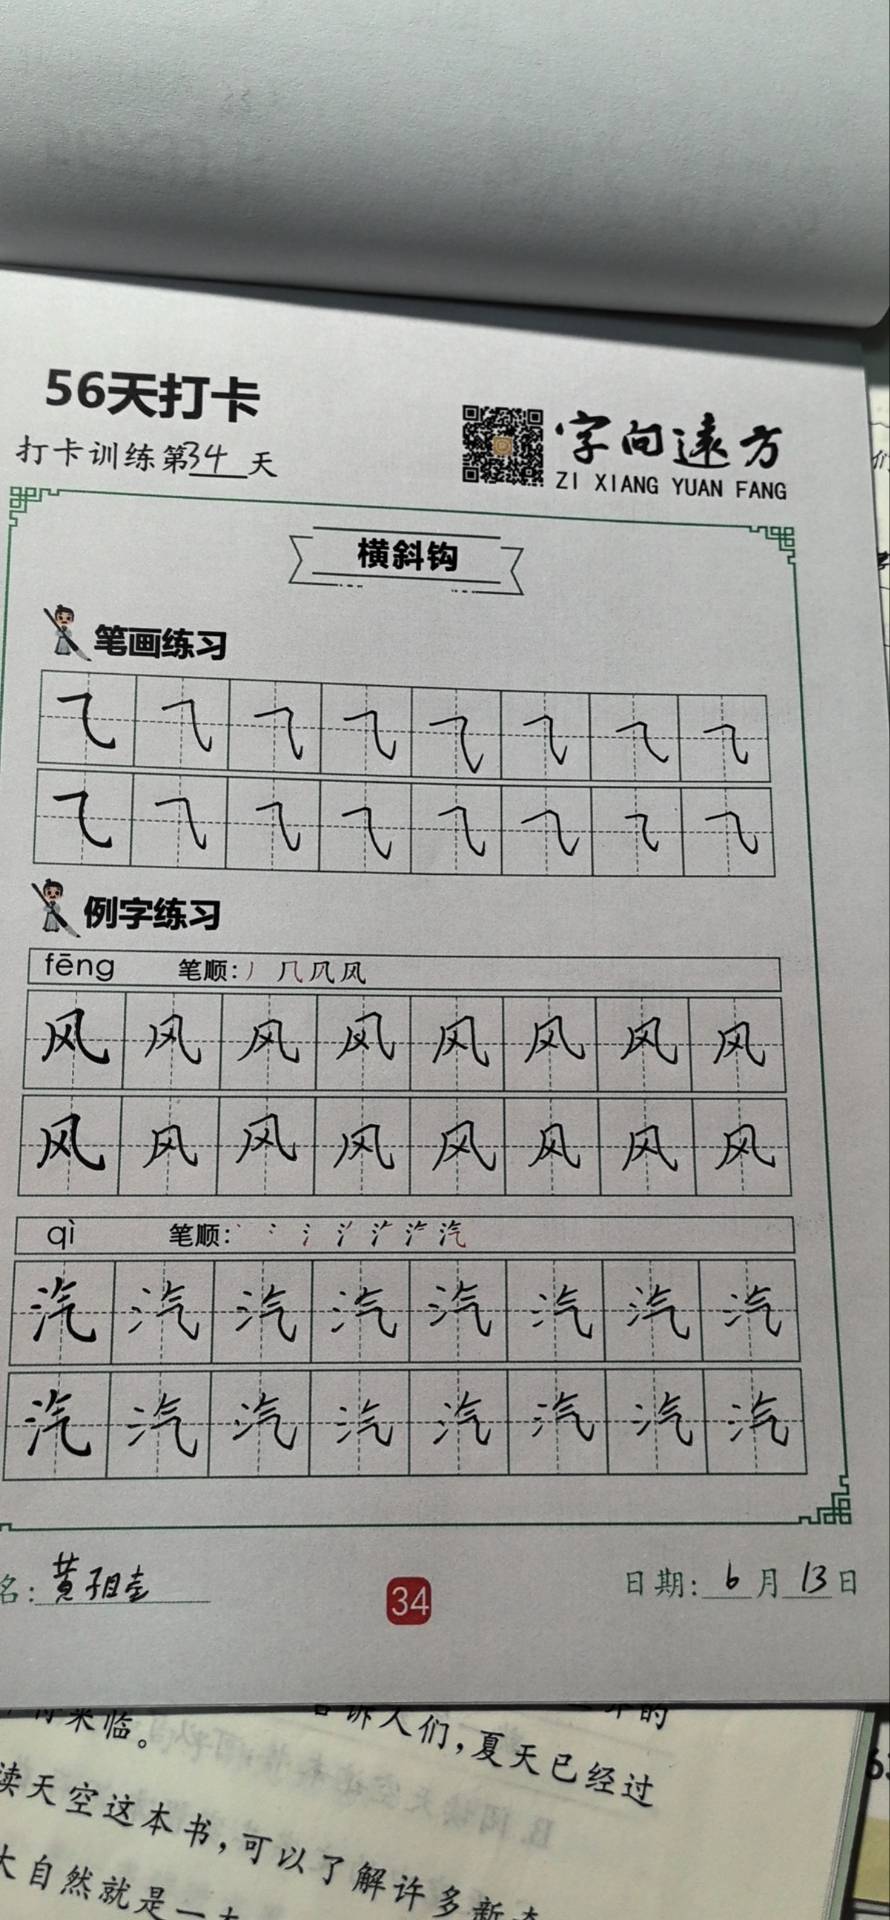 56天打卡
打卡训练第34天
字向远方
ZI XIANG YUAN FANG
横斜钩
笔画练习
⺄⺄⺄⺄⺄⺄⺄⺄
⺄⺄⺄⺄⺄⺄⺄⺄
例字练习
fēng 笔顺: 丿 几 凨 风
风风风风风风风风
风风风风风风风风
qì 笔顺: 汽
汽汽汽汽汽汽汽汽
汽汽汽汽汽汽汽汽
名:黄
34
日期:6月13日
来临。
告诉人们,夏天已经过
读天空这本书,可以了解许多新
大自然就是一